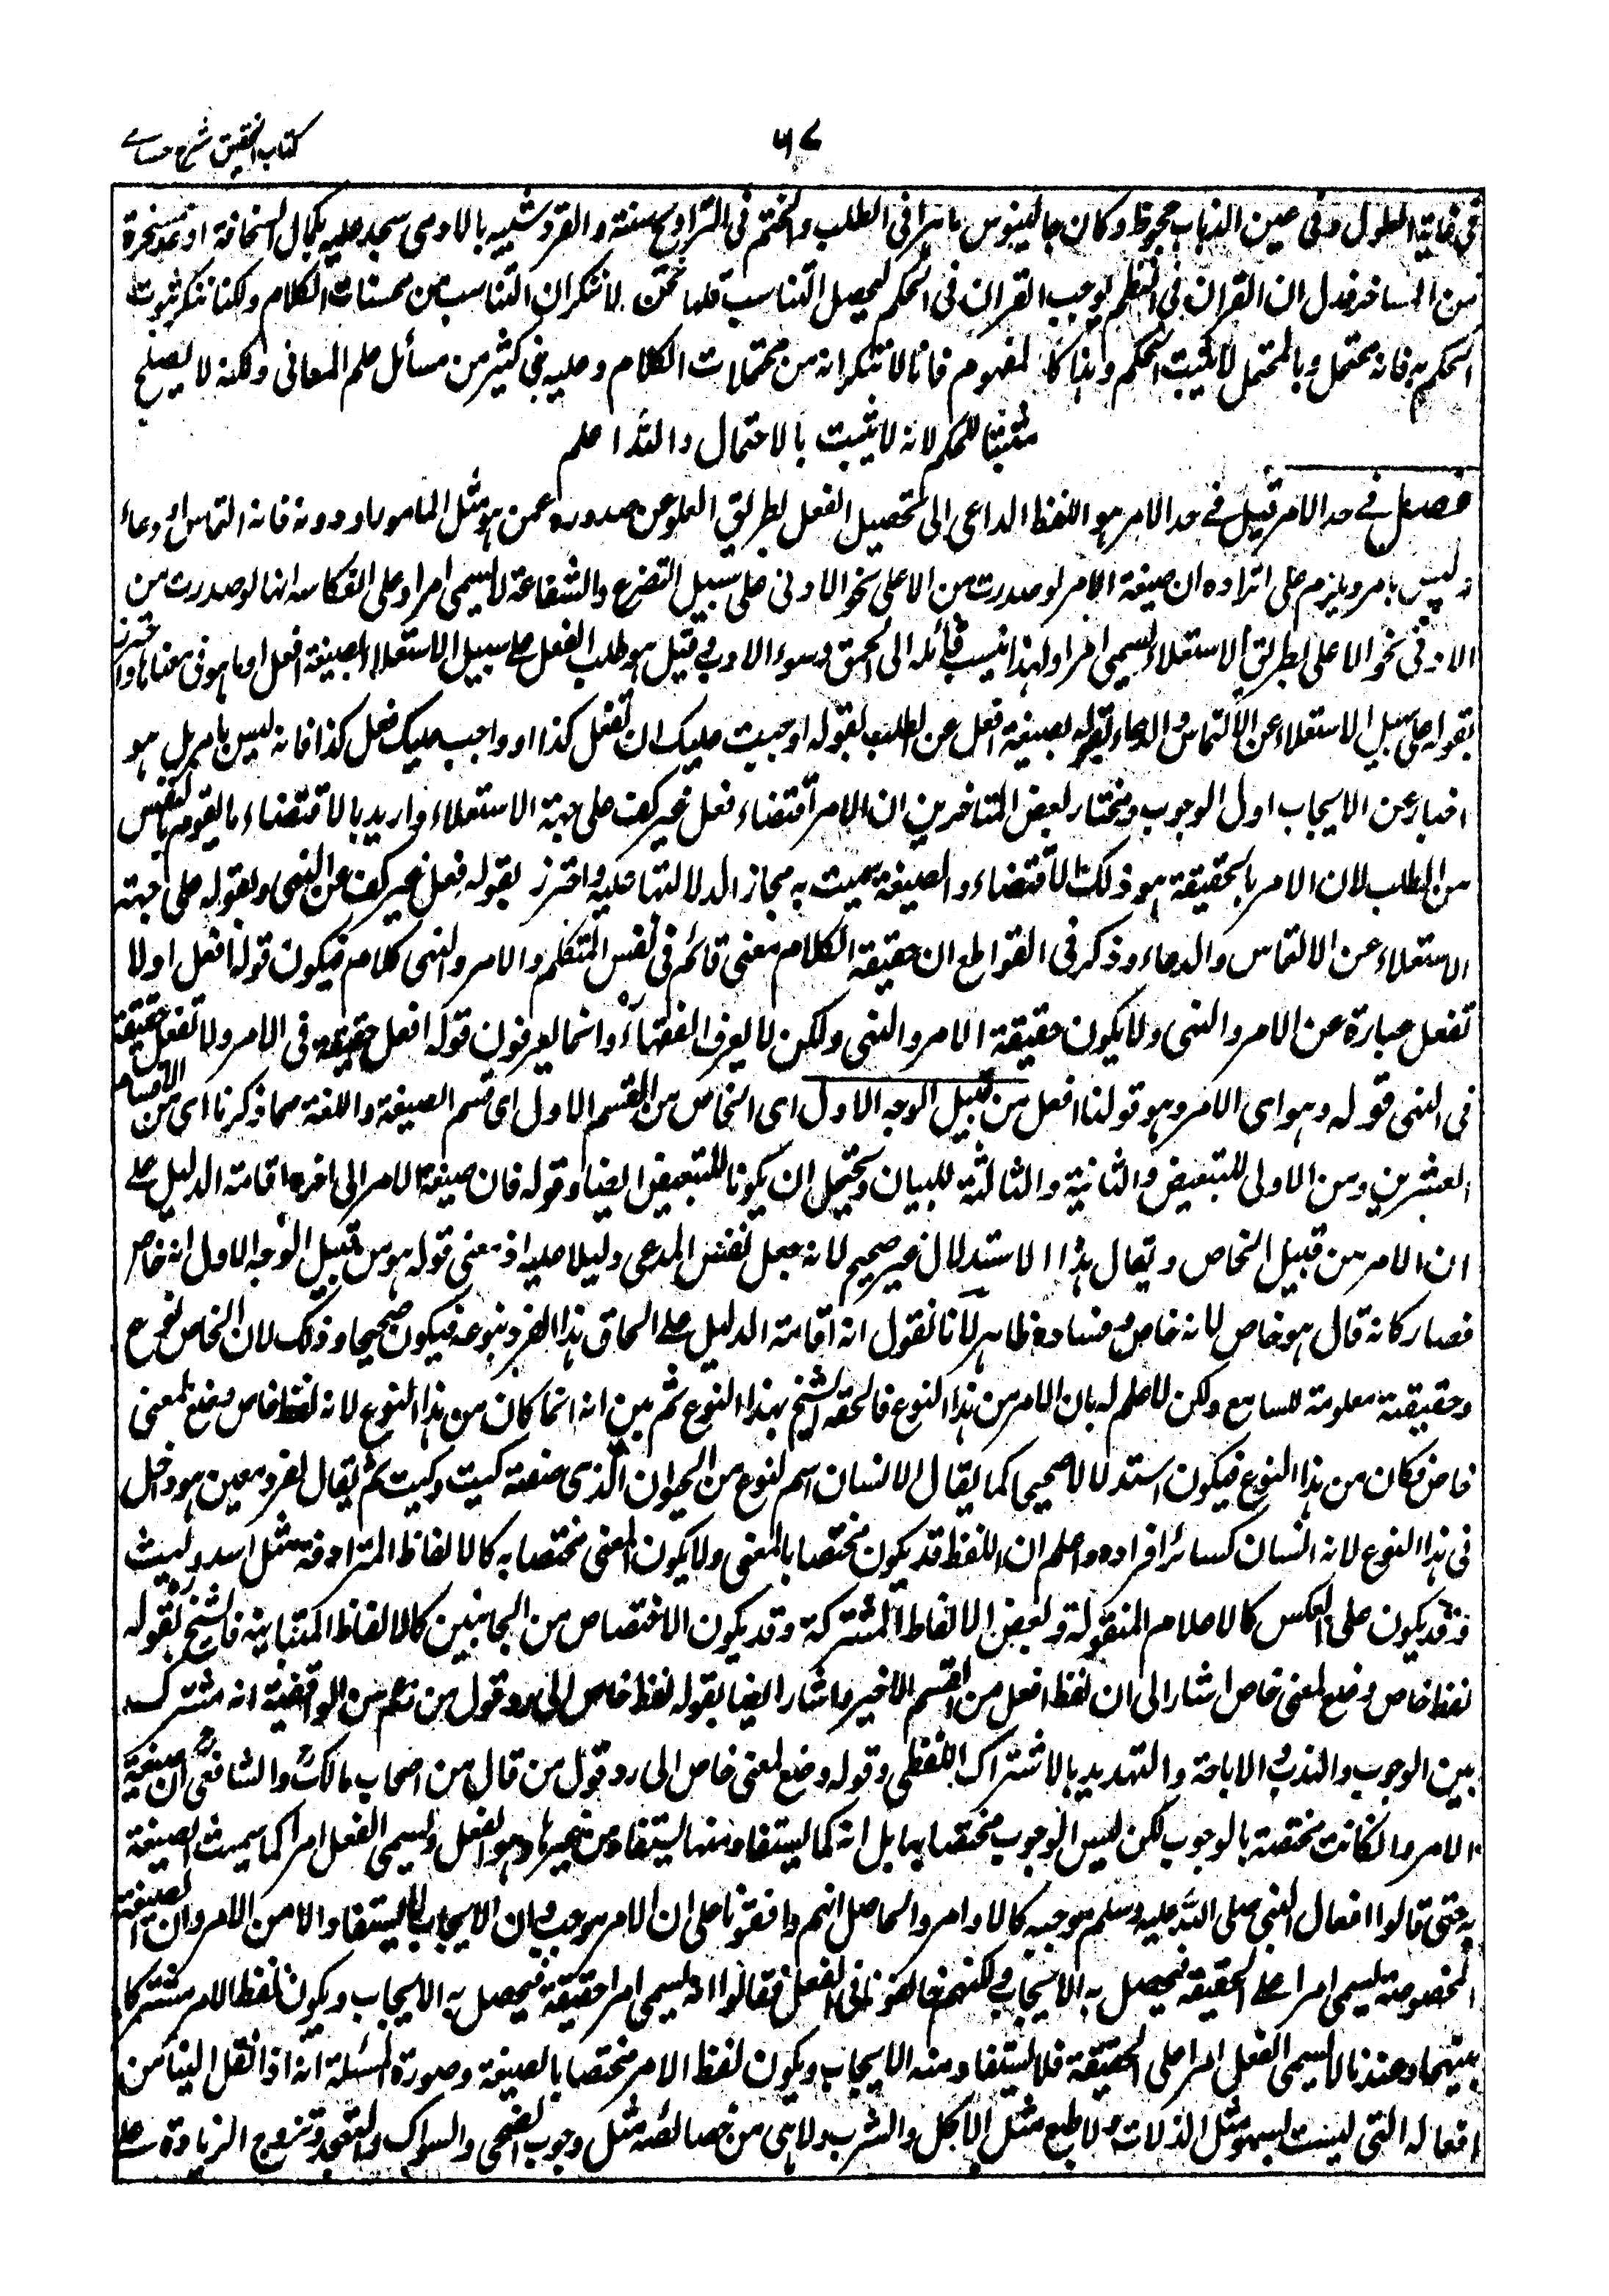 كتاب التحقيق شرح حسامى
٦٧
فى غاية الطول وفى عين الذباب جحوظ وكان جالينوس ماهرا فى الطب والختم فى التراويح سنة والقرد شبيه بالآدمى سجد عليه بكمال السخافة او عد مسخرة
من المساخر فدل ان القران فى النظم يوجب القران فى الحكم ليحصل التناسب قلنا نحن لا ننكر ان التناسب من محسنات الكلام ولكنا ننكر ثبوت
الحكم به فانه محتمل وبالمحتمل لا يثبت الحكم وهذا كالمفهوم فانا لا ننكر انه من محتملات الكلام وعليه بنى كثير من مسائل علم المعانى ولكنه لا يصلح
مثبتا للحكم لانه لا يثبت بالاحتمال والله اعلم
فصل فى حد الامر قيل فى حد الامر هو اللفظ الداعى الى تحصيل الفعل بطريق العلو عن صدوره عمن هو مثل المامور او دونه فانه التماس او دعاء
وليس بامر ويلزم على اطراده ان صيغة الامر لو صدرت من الاعلى نحو الادنى على سبيل التضرع والشفاعة لا يسمى امرا وعلى انعكاسه انها لو صدرت من
الادنى نحو الاعلى بطريق الاستعلاء يسمى امرا ولهذا ينسب قائله الى الحمق وسوء الادب وقيل هو طلب الفعل على سبيل الاستعلاء بصيغة افعل او ما هو فى معناها واحترز
بقوله على سبيل الاستعلاء عن الالتماس والدعاء بقوله بصيغة افعل عن الطلب بقوله اوجبت عليك ان تفعل كذا او واجب عليك فعل كذا فانه ليس بامر بل هو
اخبار عن الايجاب اول الوجوب ومختار بعض المتاخرين ان الامر اقتضاء فعل غير كف على جهة الاستعلاء واريد بالاقتضاء ما يقوم بالنفس
من الطلب لان الامر بالحقيقة هو ذلك الاقتضاء والصيغة سميت به مجازا لدلالتها عليه واحترز بقوله فعل غير كف عن النهى وبقوله على جهة
الاستعلاء عن الالتماس والدعاء وذكر فى القواطع ان حقيقة الكلام معنى قائم فى نفس المتكلم والامر والنهى كلام فيكون قوله افعل او لا
تفعل عبارة عن الامر والنهى ولا يكون حقيقة الامر والنهى ولكن لا يعرف الفقهاء وانما يعرفون قوله افعل حقيقة فى الامر ولا تفعل حقيقة
فى النهى قوله وهو اى الامر وهو قولنا افعل من قبيل الوجه الاول اى الخاص من القسم الاول اى قسم الصيغة واللغة مما ذكرنا اى من الاقسام
العشرين ومن الاولى للتبعيض والثانية والثالثة للبيان ويحتمل ان يكونا للتبعيض ايضا وقوله فان صيغة الامر الى اخره اقامة الدليل على
ان الامر من قبيل الخاص ويقال هذا الاستدلال غير صحيح لانه جعل نفس المدعى دليلا عليه اذ معنى قوله هو من قبيل الوجه الاول انه خاص
فصار كانه قال هو خاص لانه خاص وفساده ظاهر لانا نقول انه اقامة الدليل على الحاق هذا الفرد بنوعه فيكون صحيحا وذلك لان الخاص نوع
وحقيقته معلومة للسامع ولكن لا علم له بان الامر من هذا النوع فالحقه الشيخ بهذا النوع ثم بين انه انما كان من هذا النوع لانه لفظ خاص وضع لمعنى
خاص فكان من هذا النوع فيكون استدلالا صحيحا كما يقال الانسان اسم لنوع من الحيوان الذى صفته كيت وكيت ثم يقال لفرد معين هو داخل
فى هذا النوع لانه انسان كسائر افراده واعلم ان اللفظ قد يكون مختصا بالمعنى ولا يكون المعنى مختصا به كالالفاظ المترادفة مثل اسد وليث
وقد يكون على العكس كالاعلام المنقولة وبعض الالفاظ المشتركة وقد يكون الاختصاص من الجانبين كالالفاظ المتباينة فالشيخ بقوله
لفظ خاص وضع لمعنى خاص اشار الى ان لفظ افعل من القسم الاخير واشار ايضا بقوله لفظ خاص الى رد قول من زعم من الواقفية انه مشترك
بين الوجوب والندب والاباحة والتهديد بالاشتراك اللفظى وقوله وضع لمعنى خاص الى رد قول من قال من اصحاب مالك والشافعى ان صيغة
الامر وان كانت مختصة بالوجوب لكن ليس الوجوب مختصا بها بل انه كما يستفاد منها يستفاد من غيرها وهو الفعل ويسمى الفعل امرا كما سميت الصيغة
به حتى قالوا افعال النبى صلى الله عليه وسلم موجبة كالاوامر والحاصل انهم وافقونا على ان الامر موجب وان الايجاب لا يستفاد الا من الامر وان الصيغة
المخصوصة يسمى امرا على الحقيقة فيحصل به الايجاب ولكنهم خالفونا فى الفعل فقالوا انه يسمى امرا حقيقة فيحصل به الايجاب ويكون لفظ الامر مشتركا
بينهما وعندنا لا يسمى الفعل امرا على الحقيقة فلا يستفاد منه الايجاب ويكون لفظ الامر مختصا بالصيغة وصورة المسئلة انه اذا نقل الينا من
افعاله التى ليست بسهو مثل الزلات ولا طبع مثل الاكل والشرب ولا هى من خصائصه مثل وجوب الضحى والسواك والتهجد وتزوج الزيادة على